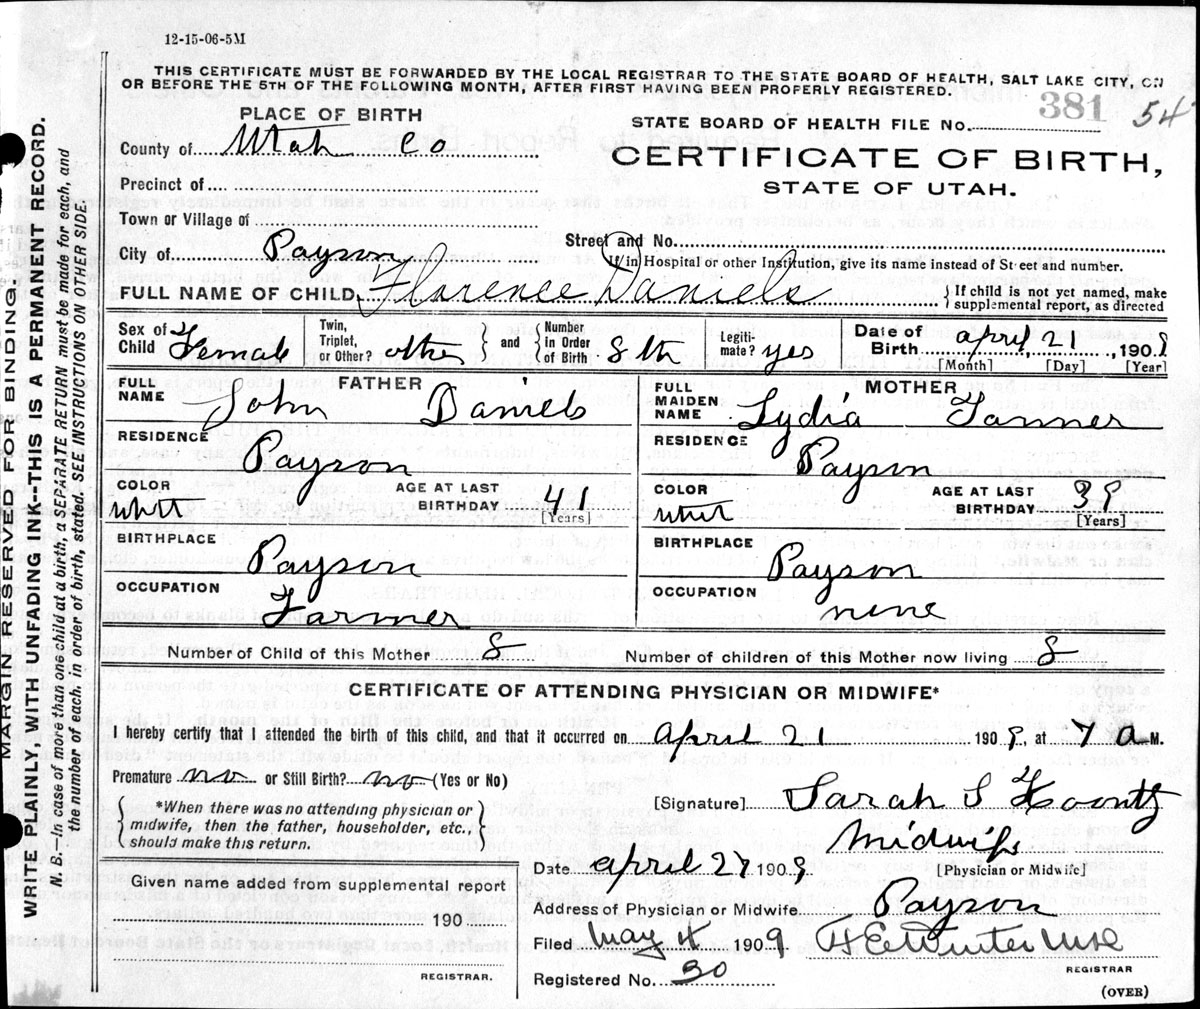 12-15-06-5M
THIS CERTIFICATE MUST BE FORWARDED BY THE LOCAL REGISTRAR TO THE STATE BOARD OF HEALTH, SALT LAKE CITY, ON
OR BEFORE THE 5TH OF THE FOLLOWING MONTH, AFTER FIRST HAVING BEEN PROPERLY REGISTERED.
PLACE OF BIRTH
381 54
STATE BOARD OF HEALTH FILE No.
County of Utah Co
CERTIFICATE OF BIRTH,
STATE OF UTAH.
Precinct of
Town or Village of
City of Payson
Street and No.
If in Hospital or other Institution, give its name instead of Street and number.
FULL NAME OF CHILD Florence Daniels
If child is not yet named, make
supplemental report, as directed
Sex of Child Female
Twin, Triplet, or Other? other
and Number in Order of Birth 8th
Legitimate? yes
Date of Birth april 21, 1909
[Month] [Day] [Year]
FATHER
FULL NAME John Daniels
RESIDENCE Payson
COLOR whit AGE AT LAST BIRTHDAY 41 [Years]
BIRTHPLACE Payson
OCCUPATION Farmer
MOTHER
FULL MAIDEN NAME Lydia Tanner
RESIDENCE Payson
COLOR whit AGE AT LAST BIRTHDAY 39 [Years]
BIRTHPLACE Payson
OCCUPATION none
Number of Child of this Mother 8 Number of children of this Mother now living 8
CERTIFICATE OF ATTENDING PHYSICIAN OR MIDWIFE*
I hereby certify that I attended the birth of this child, and that it occurred on april 21 1909, at 7 a M.
Premature no or Still Birth? no (Yes or No)
*When there was no attending physician or
midwife, then the father, householder, etc.,
should make this return.
[Signature] Sarah S Koontz
Midwife
[Physician or Midwife]
Date april 27 1909
Given name added from supplemental report
190
REGISTRAR.
Address of Physician or Midwife Payson
Filed May 4 1909 H E Winter
REGISTRAR
Registered No. 30
(OVER)
MARGIN RESERVED FOR BINDING
WRITE PLAINLY, WITH UNFADING INK--THIS IS A PERMANENT RECORD.
N. B.—In case of more than one child at a birth, a SEPARATE RETURN must be made for each, and
the number of each, in order of birth, stated. SEE INSTRUCTIONS ON OTHER SIDE.